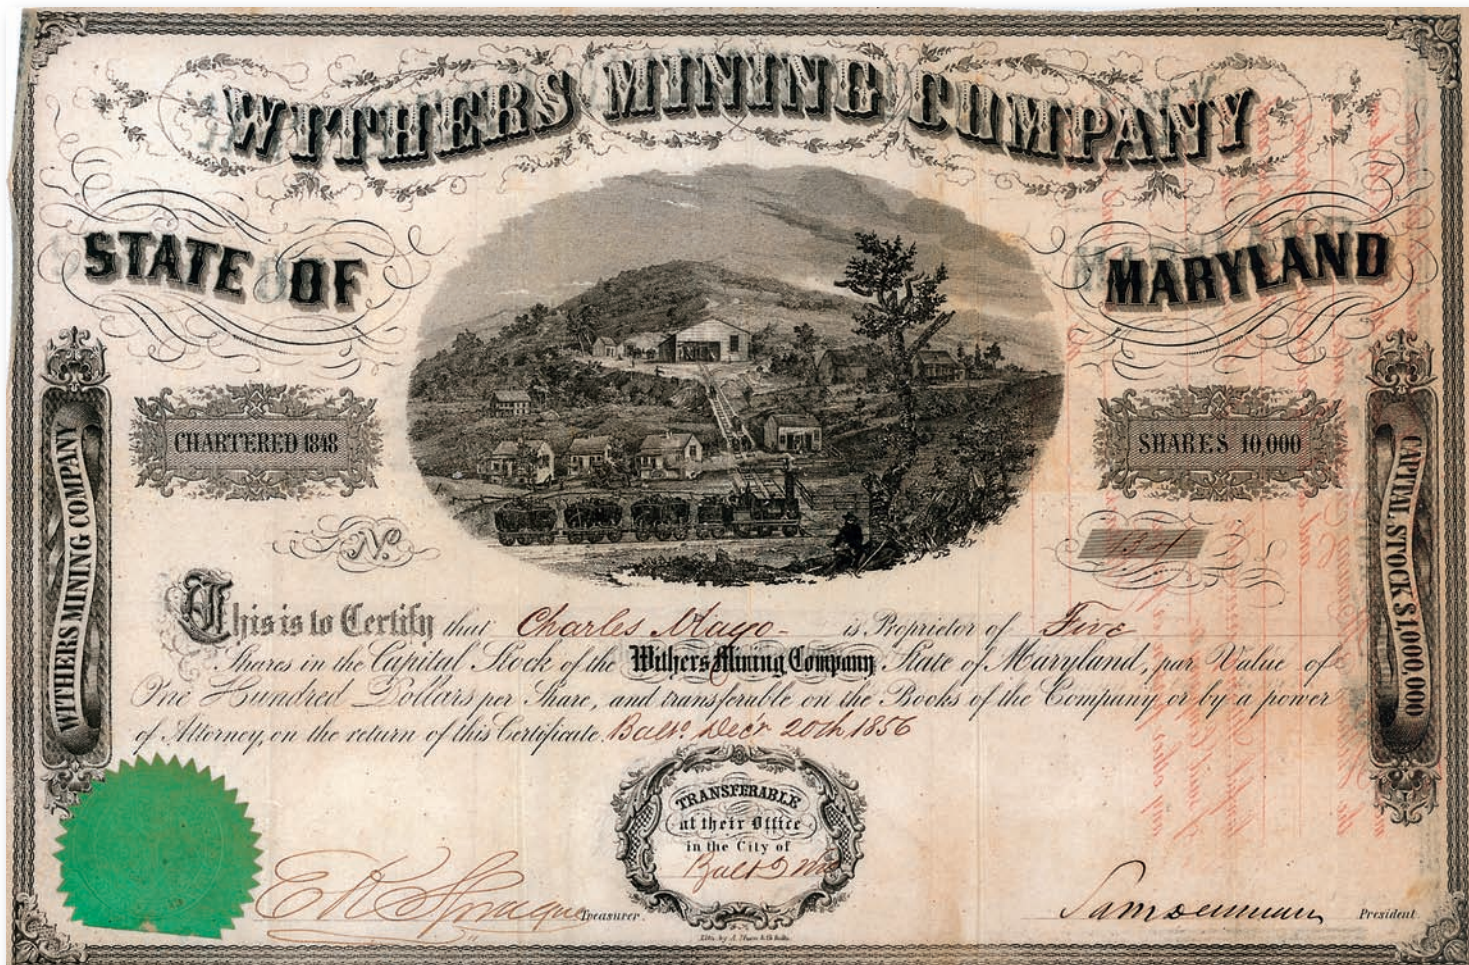 WITHERS MINING COMPANY
STATE OF MARYLAND
CHARTERED 1848
SHARES 10,000
WITHERS MINING COMPANY
CAPITAL STOCK $1,000,000
No.
This is to Certify that Charles Mayo - is Proprietor of Five
Shares in the Capital Stock of the Withers Mining Company State of Maryland, par Value of
One Hundred Dollars per Share, and transferable on the Books of the Company or by a power
of Attorney, on the return of this Certificate. Balto. Decr 20th 1856
TRANSFERABLE
at their Office
in the City of
Balto Md
E K Sprague Treasurer.
President